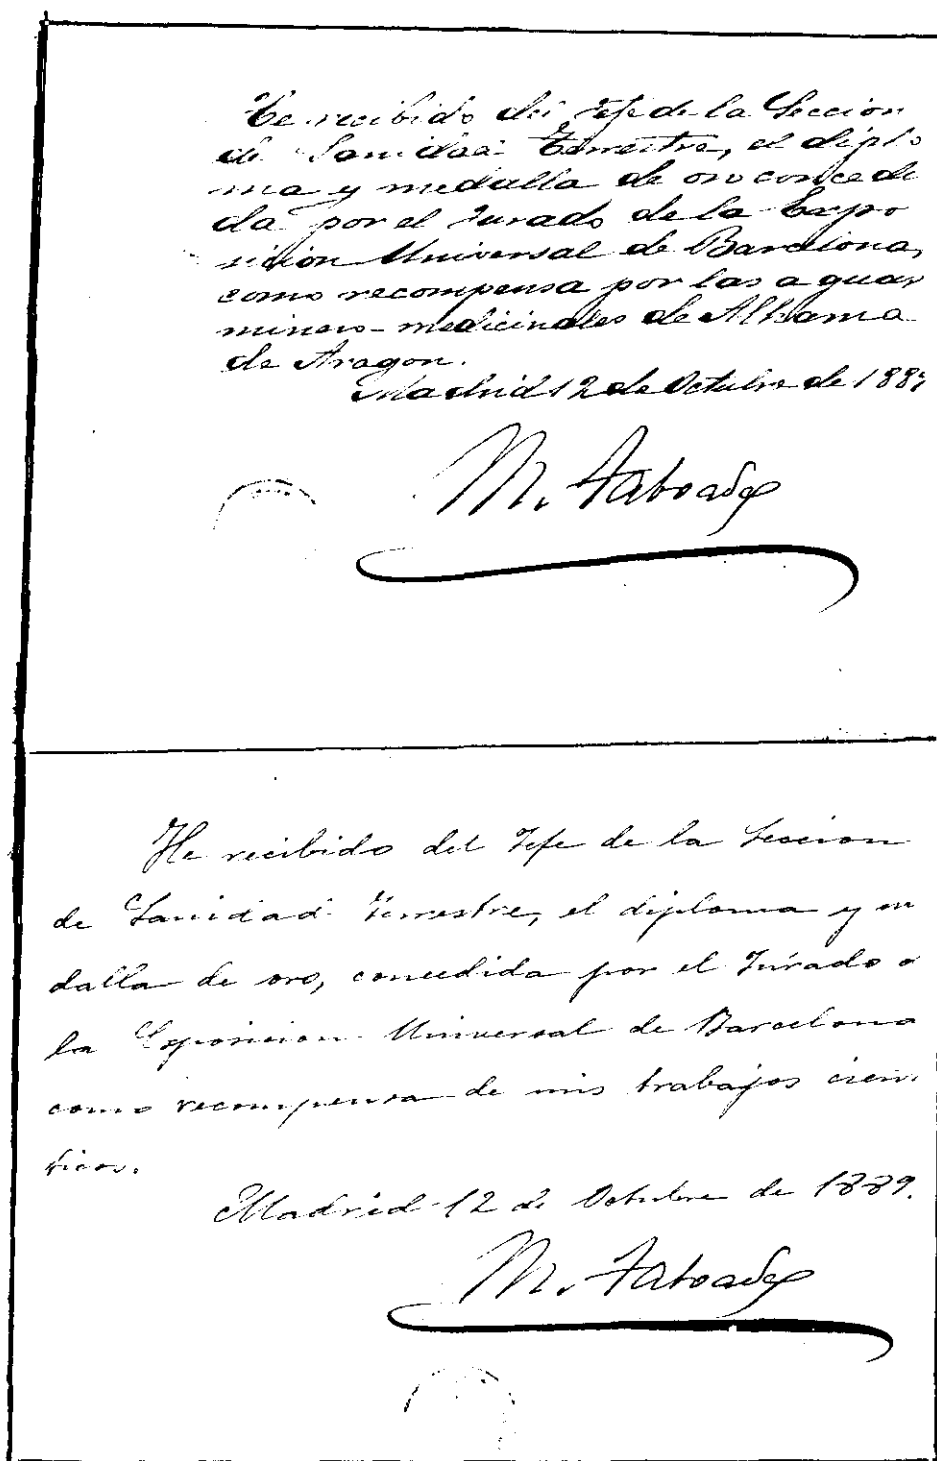 He recibido del Jefe de la Seccion
de Sanidad Terrestre, el diplo
ma y medalla de oro concedi
da por el Jurado de la Expo
sicion Universal de Barcelona,
como recompensa por las aguas
minero-medicinales de Alhama
de Aragon.
Madrid 12 de Octubre de 1889
M. Taboada
He recibido del Jefe de la Seccion
de Sanidad Terrestre, el diploma y m
dalla de oro, concedida por el Jurado d
la Exposicion Universal de Barcelona
como recompensa de mis trabajos cien
ficos.
Madrid 12 de Octubre de 1889.
M. Taboada